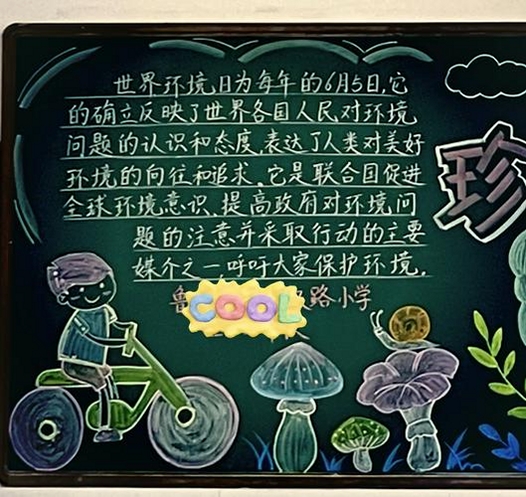 世界环境日为每年的6月5日,它
的确立反映了世界各国人民对环境
问题的认识和态度,表达了人类对美好
环境的向往和追求。它是联合国促进
全球环境意识、提高政府对环境问
题的注意并采取行动的主要
媒介之一,呼吁大家保护环境。
鲁COOL路小学
珍